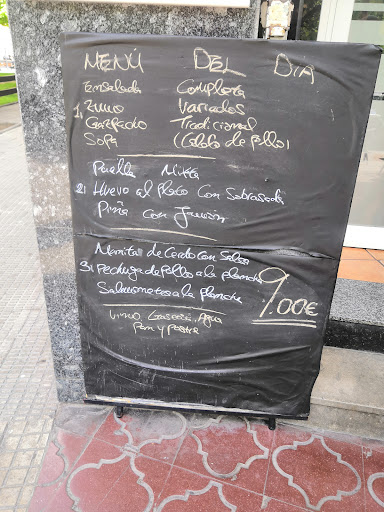 MENÚ DEL DIA
Ensalada Completa
1) Zumo Variados
Gazpacho Tradicional
Sopa (Caldo de pollo)
Paella Mixta
2) Huevo al plato con Sobrasada
Piña con Jamón
Manitas de Cerdo con Salsa
3) Pechuga de pollo a la plancha
Salmonetes a la plancha
9.00€
Vino, Gaseosa, Agua
Pan y postre